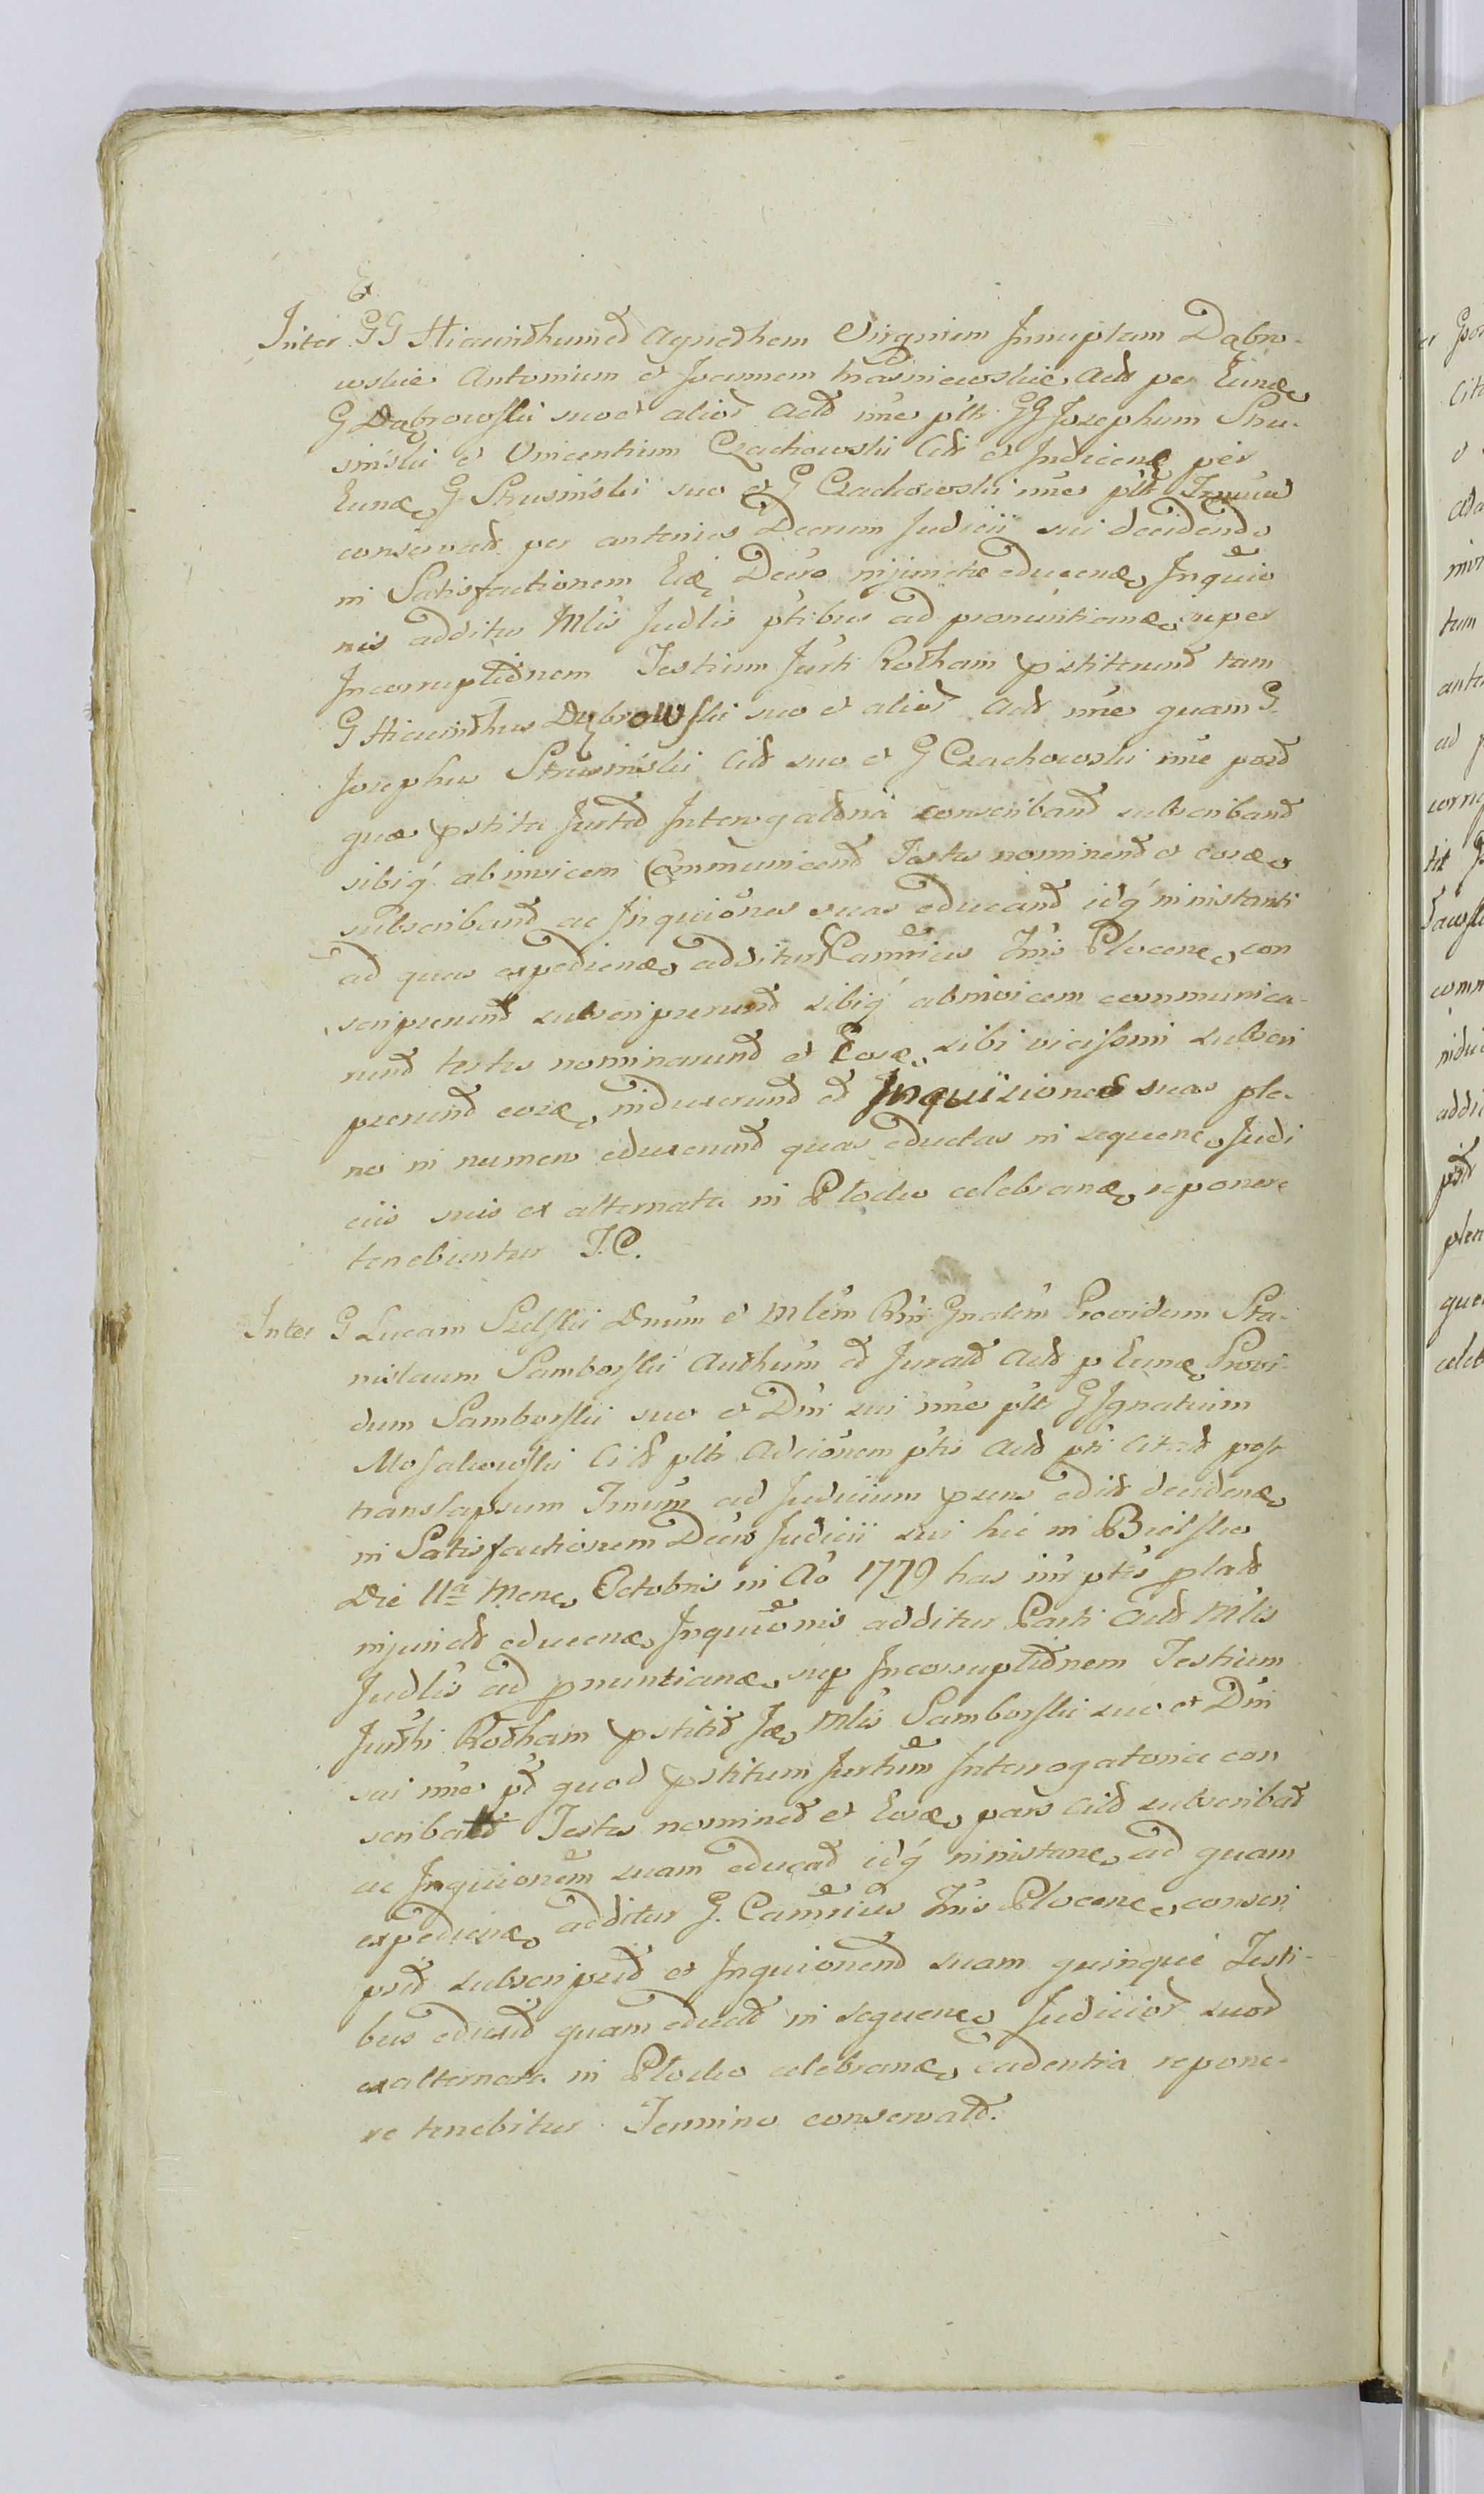 Inter GG Hiacinthum et Agnethem Virginem Innuptam Dąbro-
wskie Antonium et Joannem Kraśniewskie Act per Eunde
G Dąbrowski suo et alior Act nne pltr GG Josephum Stru-
sinski et Vincentium Czachowski Cit et Judicene per
Eunde G Strusinski suo et G Czachowski nne pltr
conservat per anterius Decrum Judicii sui decidendo
in Satisfactionem Decro injunctae educene Inquio
nis additus Mlis Judlis ptibus ad pronuntiane super
Incorruptionem Testium Jurti Rotham pstiterunt tam
G Hiacinthus Dąbrowski suo et alior Act nne quam G
Josephus Strusinski Cit suo et G Czachowski nne
quo pstito Interrogatoria conscribant subscribant
sibiq ab invicem Communicent Testes nominent et eosde
subscribant ac Inquiones suas educant idq in instanti
ad quas expediene additur Camrius Tris Plocene con
scripserunt subscripserunt sibiq ab invicem communica-
runt testes nominarunt et Eosde sibi vicissim subscri
pserunt eosde induxerunt et Inquisiones suas ple-
no in numero eduxerunt quas eductas in sequene Judi
ciis suis ex alternata in Plocko celebrane reponere
tenebuntur T.C.
Inter G Lucam Szelski Dnum et Mlem Providum Sta-
nislaum Samborski Authum et Jurat Act p Eunde Provi-
dum Samborski suo et Dni sui nne pltr G Ignatium
Mosakowski Cit pltr Adcionem ptis Act pti Citat post
translapsum Trnum ad Judicium prens decidene
in Satisfactionem Decro Judicii sui hic in Bielsko
Die 11a Mene Octobris in Ao 1779 has inr ptes plat
injunct educene Inquionis additur Parti Act Mlis
Judlis ad pnuntiane sup Incorruptionem Testium
Jurthi Rotham pstitit Mlis Samborski suo et Dni
sui nne quod pstitum Jurtum Interrogatoria con
scribat Testes nominet et Eosde pars Cit subscribat
ac Inquionem suam educat idq in instane ad quam
expediene additur G. Camrius Tris Plocene conscri
psit subscripsit et Inquionem suam quinque Testi-
bus eduxit quam educt in sequene Judicior suor
exalternata in Plocko celebrane cadentia repone-
re tenebitur Termino conservato.